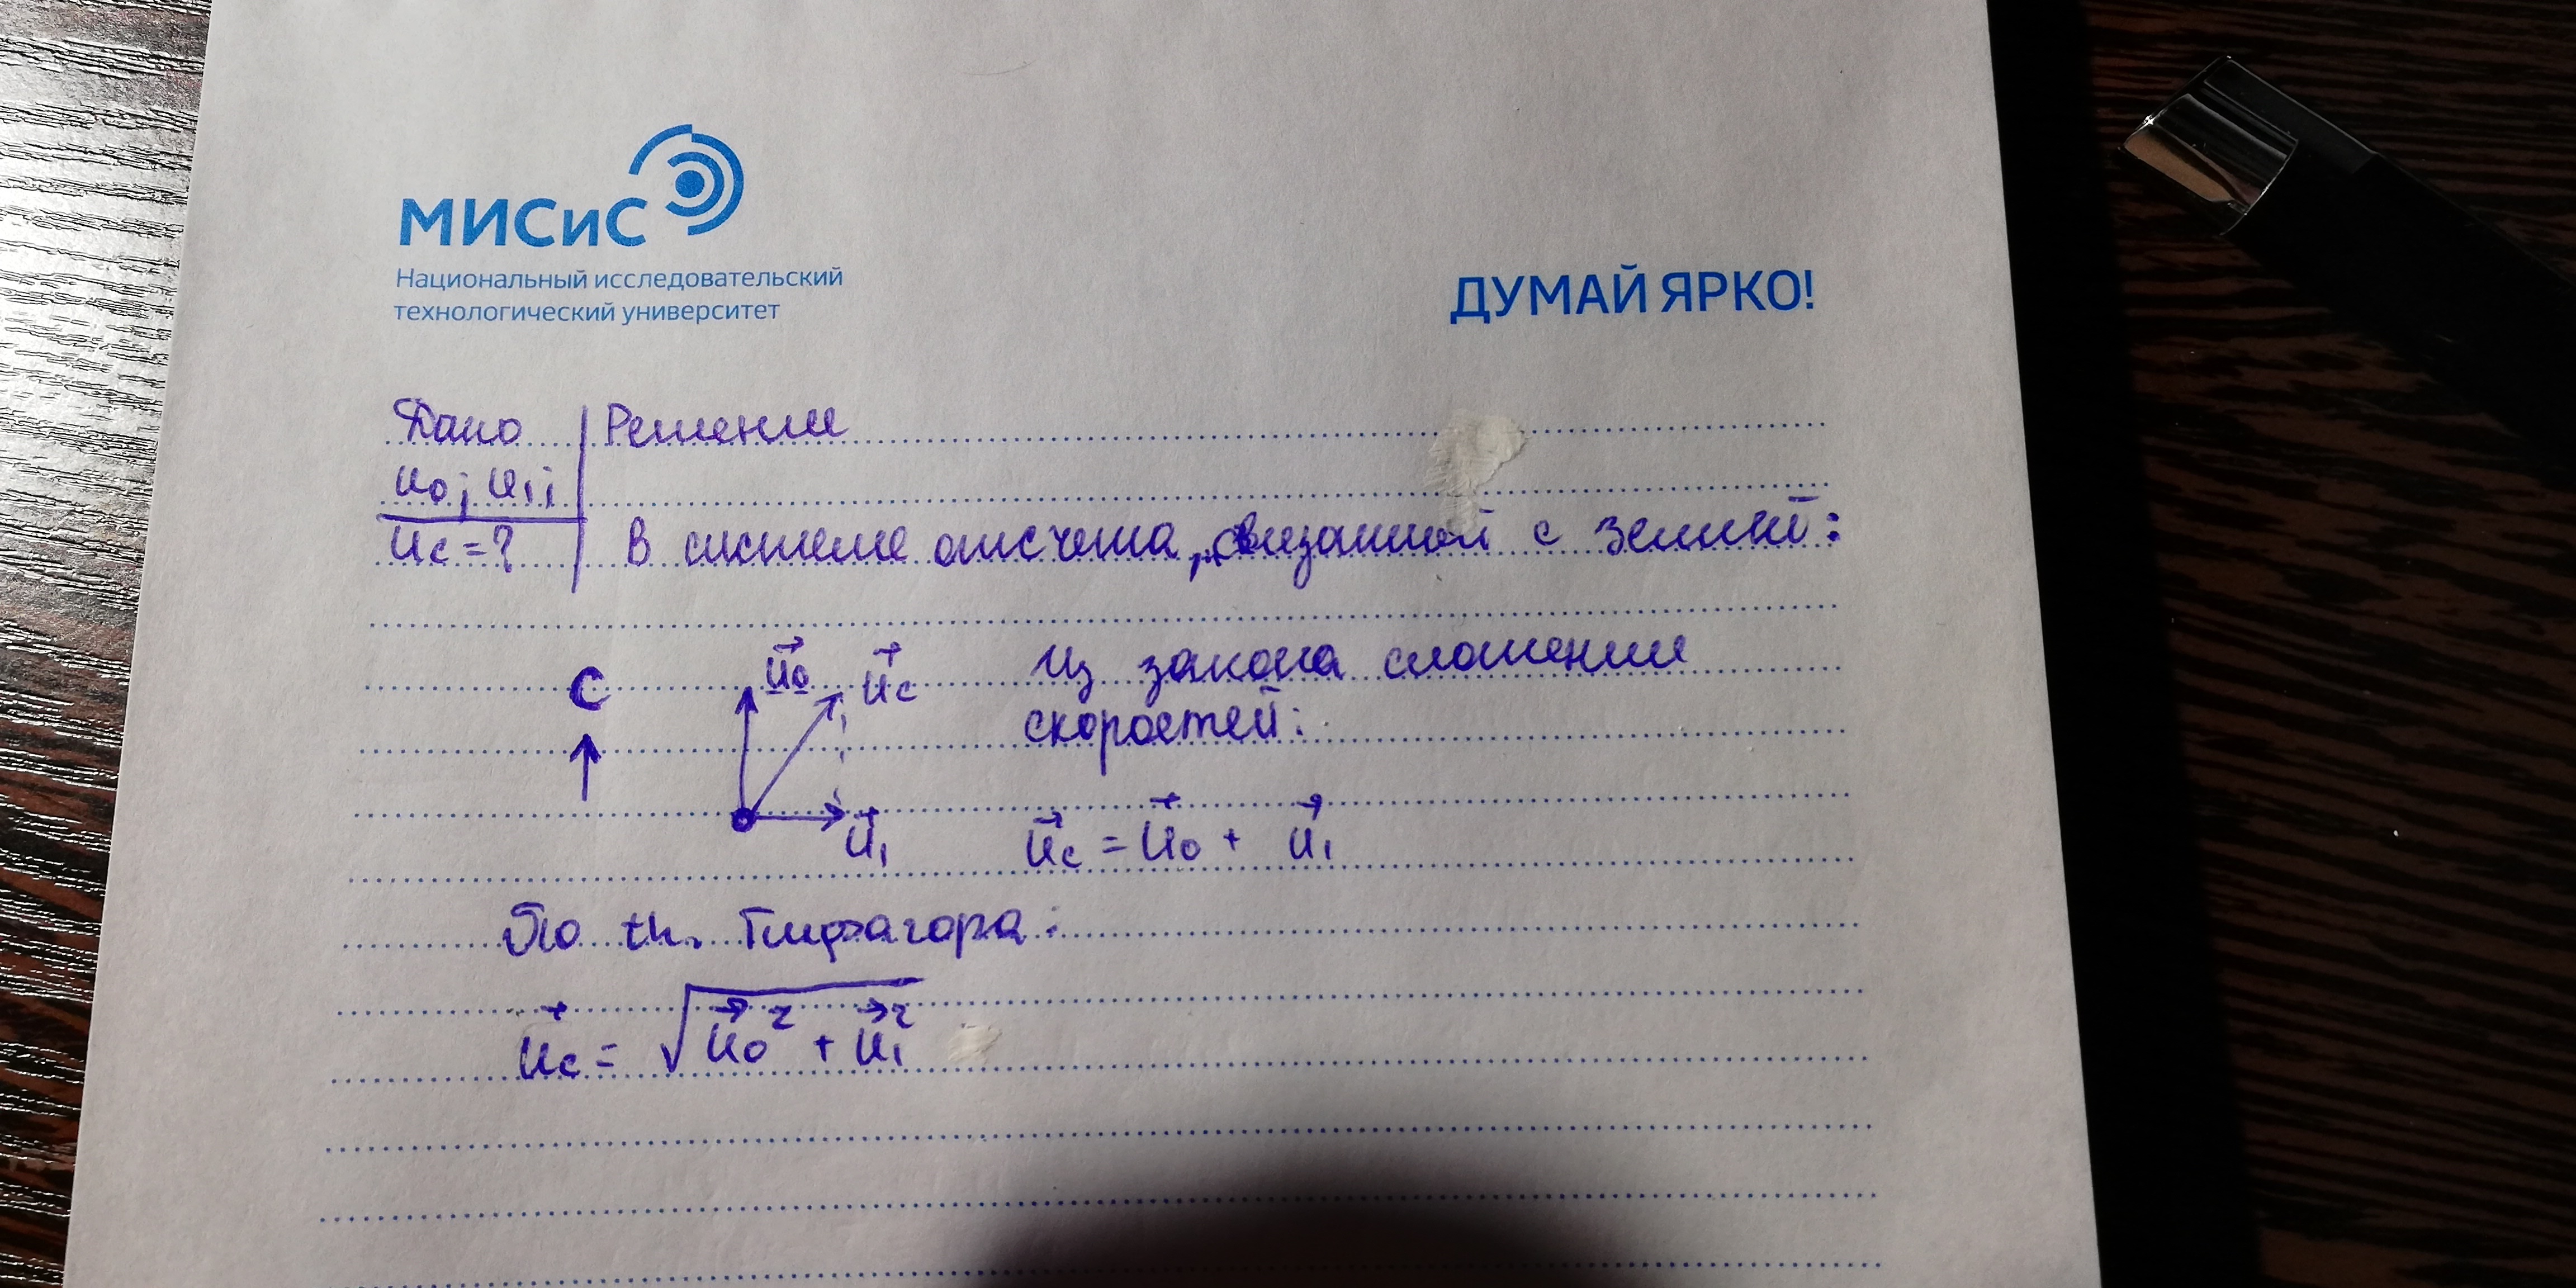 МИСиС
Национальный исследовательский
технологический университет
ДУМАЙ ЯРКО!
Дано
Решение
u₀; u₁;
u_c = ?
В системе отсчета, связанной с Землей:
С
u⃗₀
u⃗_c
u⃗₁
Из закона сложения
скоростей:
u⃗_c = u⃗₀ + u⃗₁
По th. Пифагора:
u⃗_c = √(u⃗₀² + u⃗₁²)